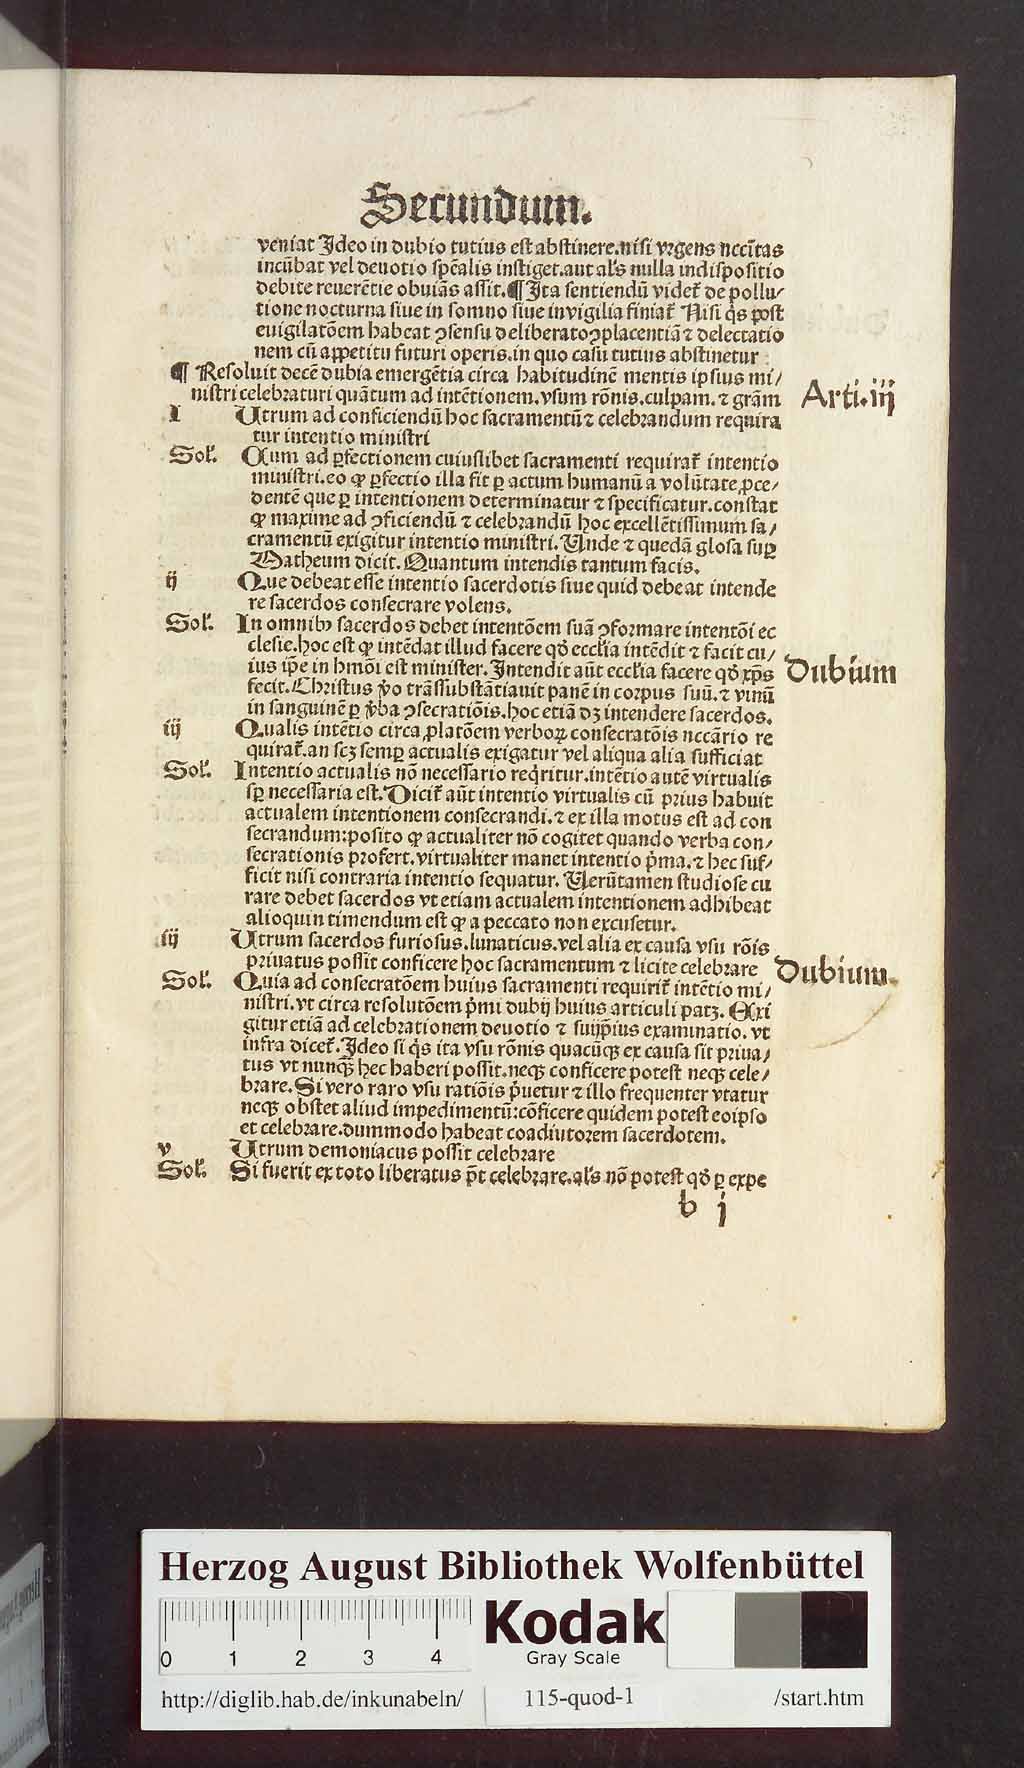 Secundum.
veniat Ideo in dubio tutius est abstinere.nisi vrgens nccītas
incūbat vel deuotio spēalis instiget.aut al's nulla indispositio
debite reuerētie obuiās assit.¶Ita sentiendū videt᷑ de pollu/
tione nocturna siue in somno siue in vigilia finiat᷑ Nisi q̇s post
euigilatōem habeat ꝯsensū deliberatoꝯplacentiā ⁊ delectatio
nem cū appetitu futuri operis.in quo casu tutius abstinetur
¶ Resoluit decē dubia emergētia circa habitudinē mentis ipsius mi/
nistri celebraturi quātum ad intētionem.vsum rōnis.culpam.⁊ grām
Arti.iij
I Utrum ad conficiendū hoc sacramentū ⁊ celebrandum requira
tur intentio ministri
Sol'. Cum ad ꝑfectionem cuiuslibet sacramenti requirat᷑ intentio
ministri.eo ꝙ ꝑfectio illa fit ꝑ actum humanū a volūtate ꝓce/
dentē que ꝑ intentionem determinatur ⁊ specificatur.constat
ꝙ maxime ad ꝯficiendū ⁊ celebrandū hoc excellētissimum sa/
cramentū exigitur intentio ministri. Unde ⁊ quedā glosa suꝑ
Matheum dicit. Quantum intendis tantum facis.
ij Que debeat esse intentio sacerdotis siue quid debeat intende
re sacerdos consecrare volens.
Sol'. In omnibꝰ sacerdos debet intentōem suā ꝯformare intentōi ec
clesie.hoc est ꝙ intēdat illud facere qđ eccl'ia intēdit ⁊ facit cu/
ius ip̄e in hmōi est minister. Intendit aūt eccl'ia facere qđ xp̄s
Dubium
fecit. Christus v̇o trāssubstātiauit panē in corpus suū.⁊ vinū
in sanguinē ꝑ v̇ba ꝯsecratiōis.hoc etiā dꝫ intendere sacerdos.
iij Qualis intētio circa ꝓlatōem verboꝝ consecratōis nccārio re
quirat᷑.an scꝫ semꝑ actualis exigatur vel aliqua alia sufficiat
Sol'. Intentio actualis nō necessario req̇ritur.intētio autē virtualis
sꝑ necessaria est. Dicit᷑ aūt intentio virtualis cū prius habuit
actualem intentionem consecrandi.⁊ ex illa motus est ad con
secrandum:posito ꝙ actualiter nō cogitet quando verba con/
secrationis profert.virtualiter manet intentio p̄ma.⁊ hec suf/
ficit nisi contraria intentio sequatur. Uerūtamen studiose cu
rare debet sacerdos vt etiam actualem intentionem adhibeat
alioquin timendum est ꝙ a peccato non excusetur.
iij Utrum sacerdos furiosus.lunaticus.vel alia ex causa vsu rōis
priuatus possit conficere hoc sacramentum ⁊ licite celebrare
Dubium.
Sol'. Quia ad consecratōem huius sacramenti requirit᷑ intētio mi/
nistri.vt circa resolutōem p̄mi dubij huius articuli patꝫ. Exi
gitur etiā ad celebrationem deuotio ⁊ suijp̄ius examinatio. vt
infra dicet᷑. Ideo si q̇s ita vsu rōnis quacūqꝫ ex causa sit priua/
tus vt nunqꝫ̄ hec haberi possit.neqꝫ conficere potest neqꝫ cele/
brare. Si vero raro vsu ratiōis p̄uetur ⁊ illo frequenter vtatur
neqꝫ obstet aliud impedimentū:cōficere quidem potest eoipso
et celebrare.dummodo habeat coadiutorem sacerdotem.
v Utrum demoniacus possit celebrare
Sol'. Si fuerit ex toto liberatus p̄t celebrare.al's nō potest qđ ꝑ expe
b j
Herzog August Bibliothek Wolfenbüttel
0 1 2 3 4
Kodak
Gray Scale
http://diglib.hab.de/inkunabeln/ 115-quod-1 /start.htm